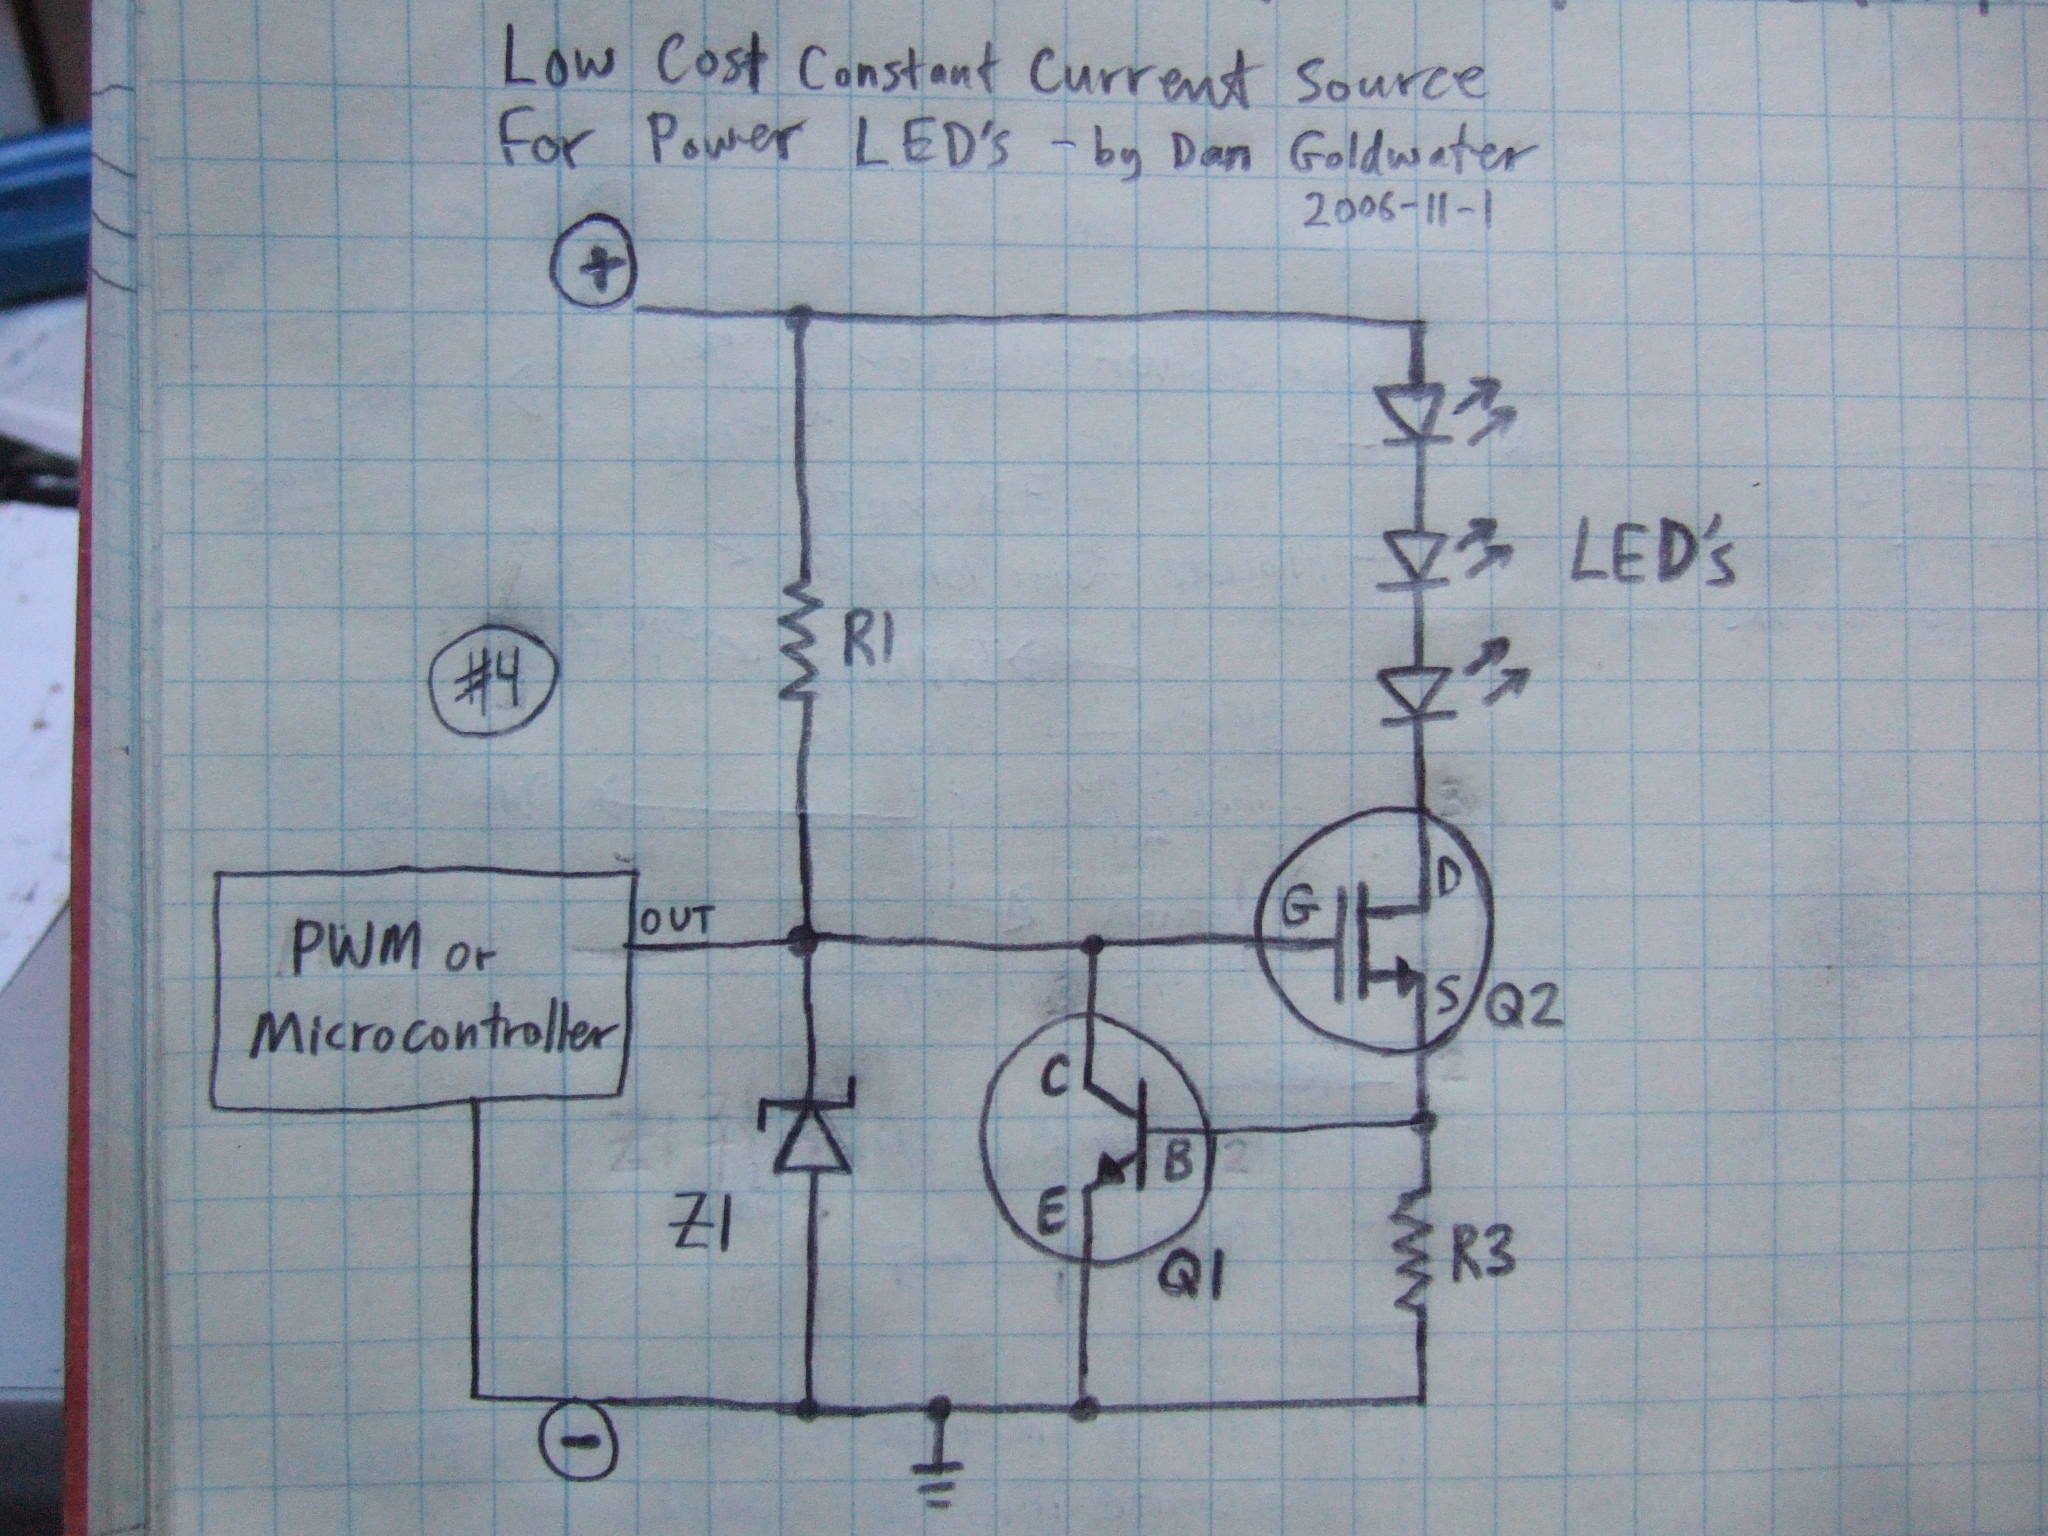 Low Cost Constant Current Source
For Power LED's - by Dan Goldwater
2006-11-1
+
LED's
R1
#4
OUT
PWM or
Microcontroller
G
D
S
Q2
C
B
E
Q1
Z1
R3
-